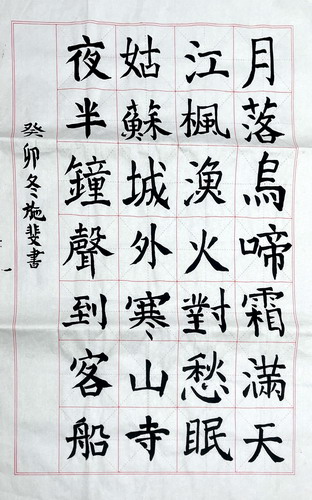 月落烏啼霜滿天
江楓漁火對愁眠
姑蘇城外寒山寺
夜半鐘聲到客船
癸卯冬施斐書